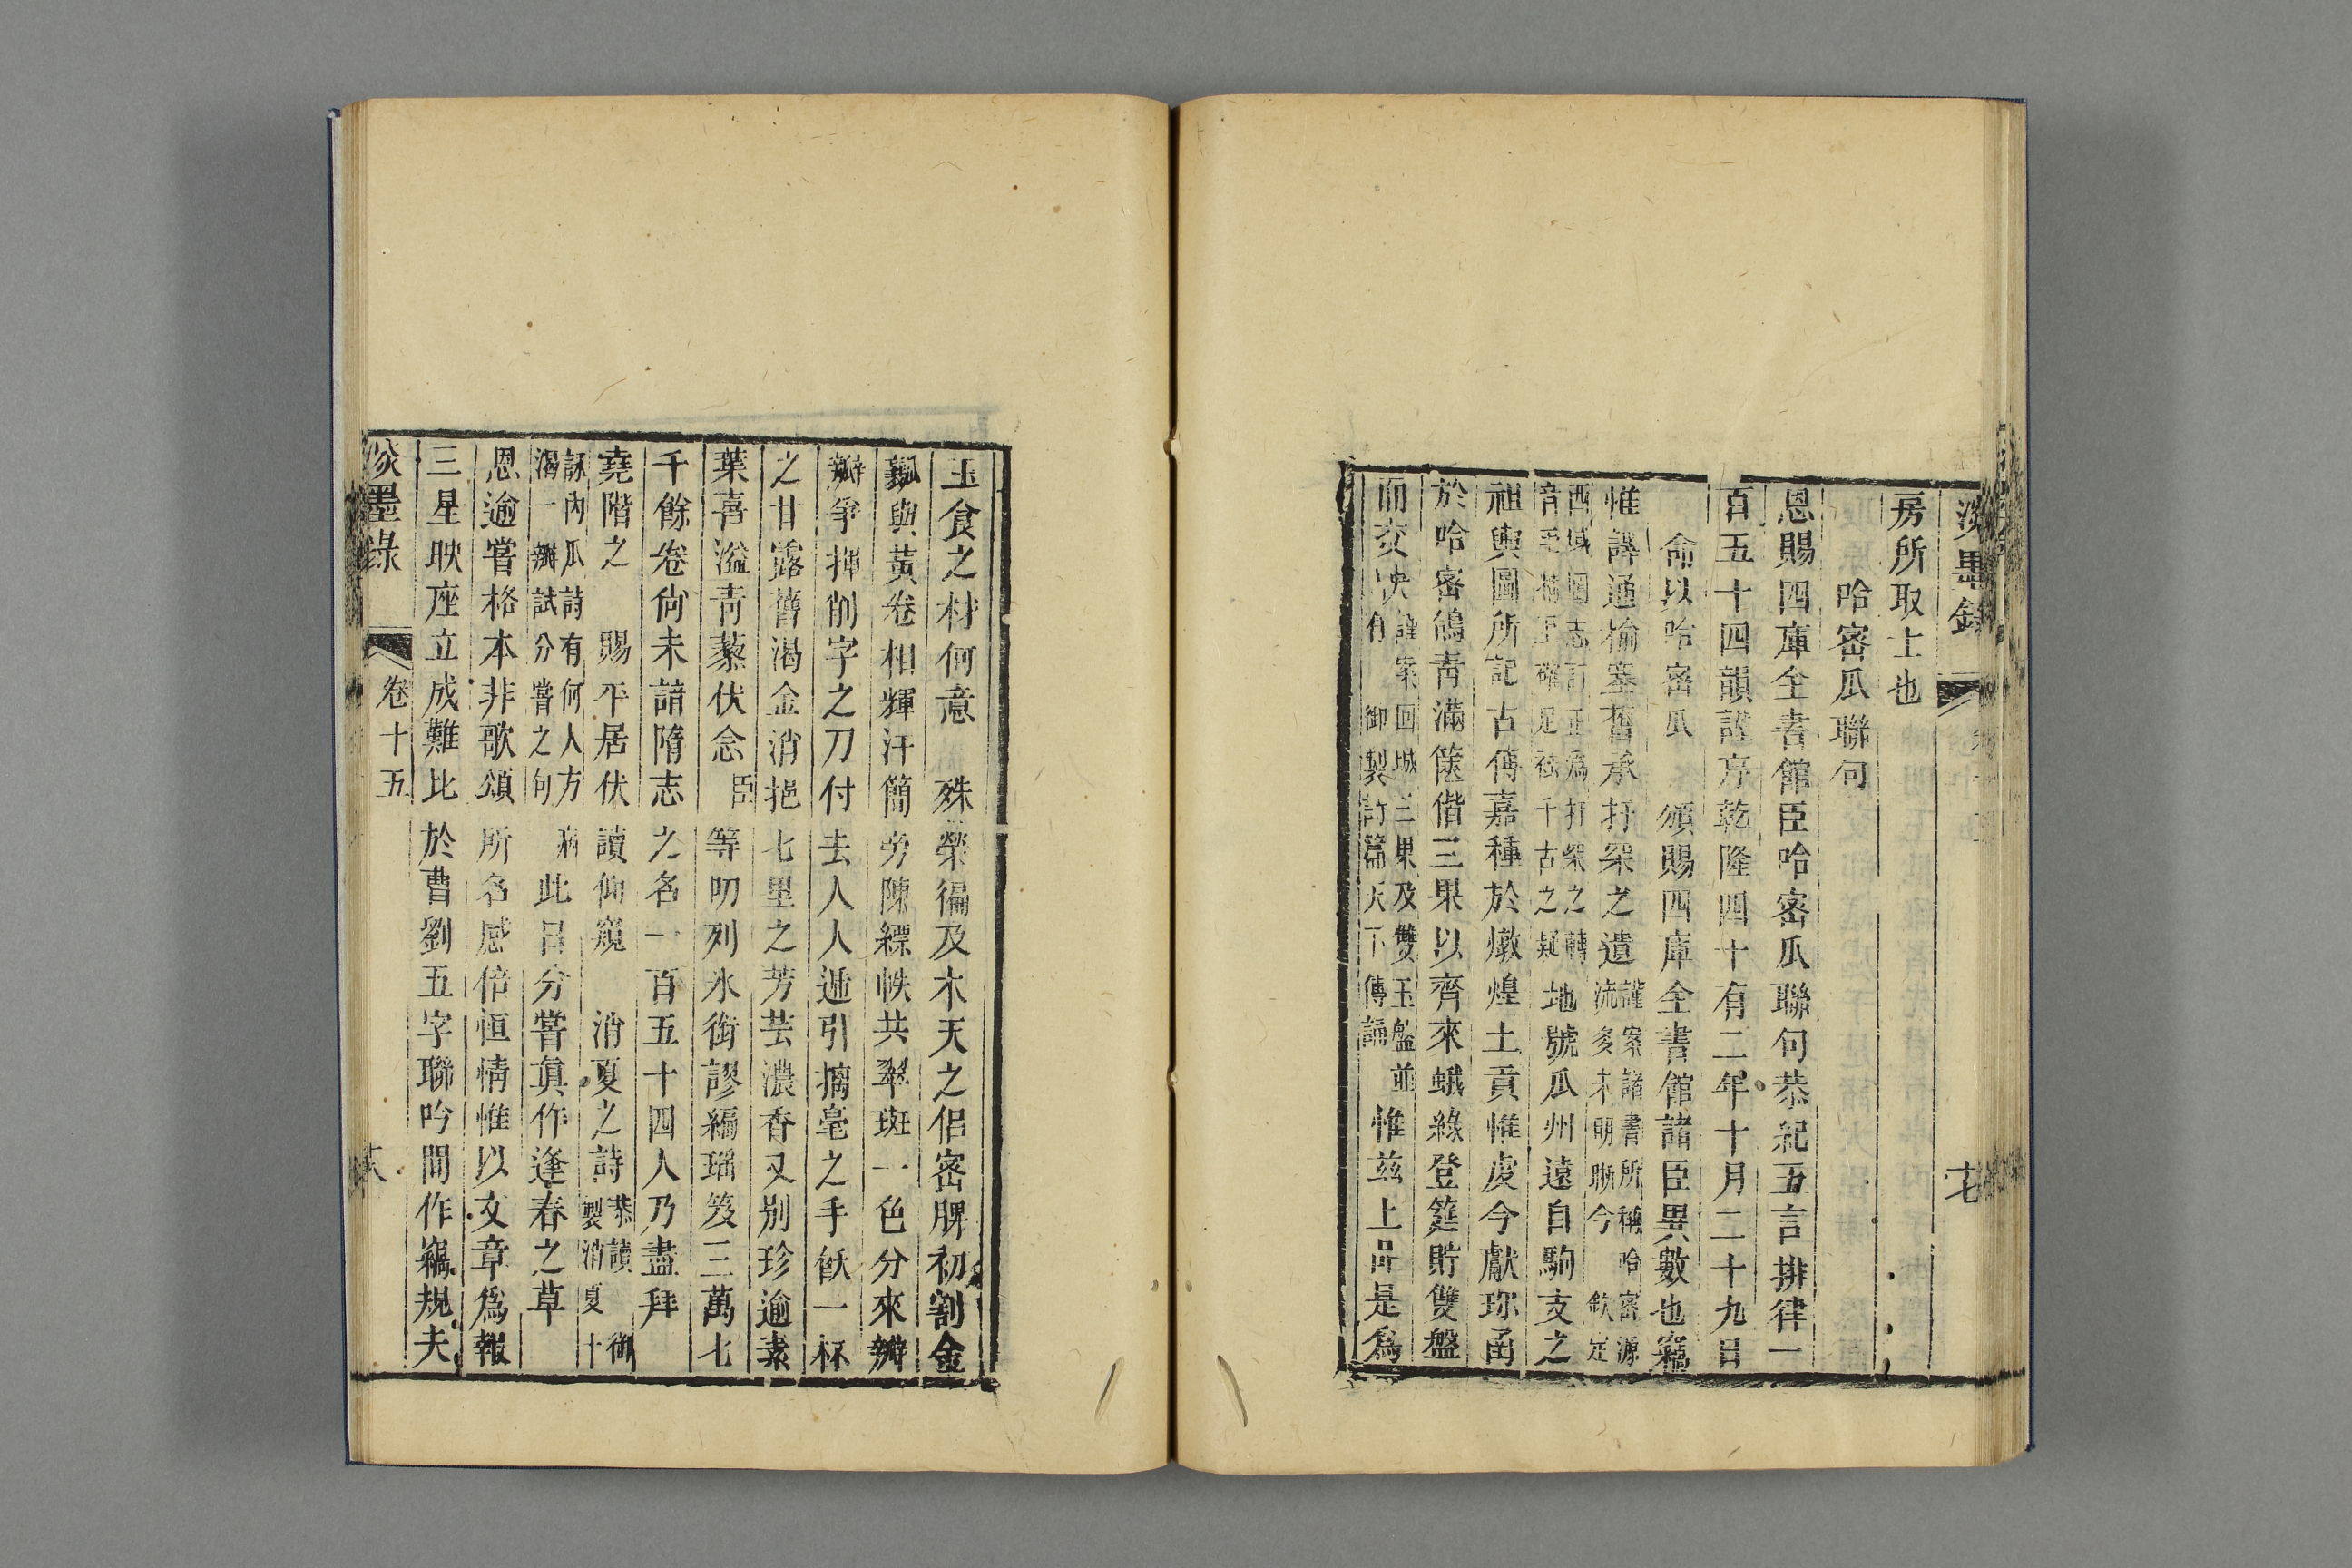 淡墨錄
十七
房所取士也
哈密瓜聯句
恩賜四庫全書館臣哈密瓜聯句恭紀五言排律一
百五十四韻謹序乾隆四十有二年十月二十九日
命以哈密瓜 頒賜四庫全書館諸臣異數也竊
惟譯通榆塞舊承扜罙之遺
謹案諸書所稱哈密源
流多未明晰今 欽定
西域圖志訂正爲扜罙之轉
音千古之疑
地號瓜州遠自駒支之
祖輿圖所記古傳嘉種於燉煌土貢惟虔今獻珍函
於哈密鴿靑滿篋偕三果以齊來蛾綠登筵貯雙盤
而交映
謹案回城三果及雙玉盤並
有 御製詩篇天下傳誦
惟茲上品是爲
玉食之材何意 殊榮徧及木天之侣密脾初割金
瓤與黃卷相輝汗簡旁陳縹帙共翠斑一色分來瓣
瓣爭揮削字之刀付去人人遞引摛毫之手飲一杯
之甘露舊渴金消挹七里之芳芸濃香又別珍逾素
葉喜溢靑藜伏念 臣等叨列氷銜謬編瑤笈三萬七
千餘卷尙未諳隋志之名一百五十四人乃盡拜
堯階之 賜平居伏讀仰窺 消夏之詩
恭讀 御
製消夏十
詠內瓜詩有何人方病
渴一瓣試分嘗之句
此日分嘗眞作逢春之草
恩逾嘗格本非歌頌所名感倍恒情惟以文章爲報
三星映座立成難比於曹劉五字聯吟間作竊規夫
淡墨錄
卷十五
十八